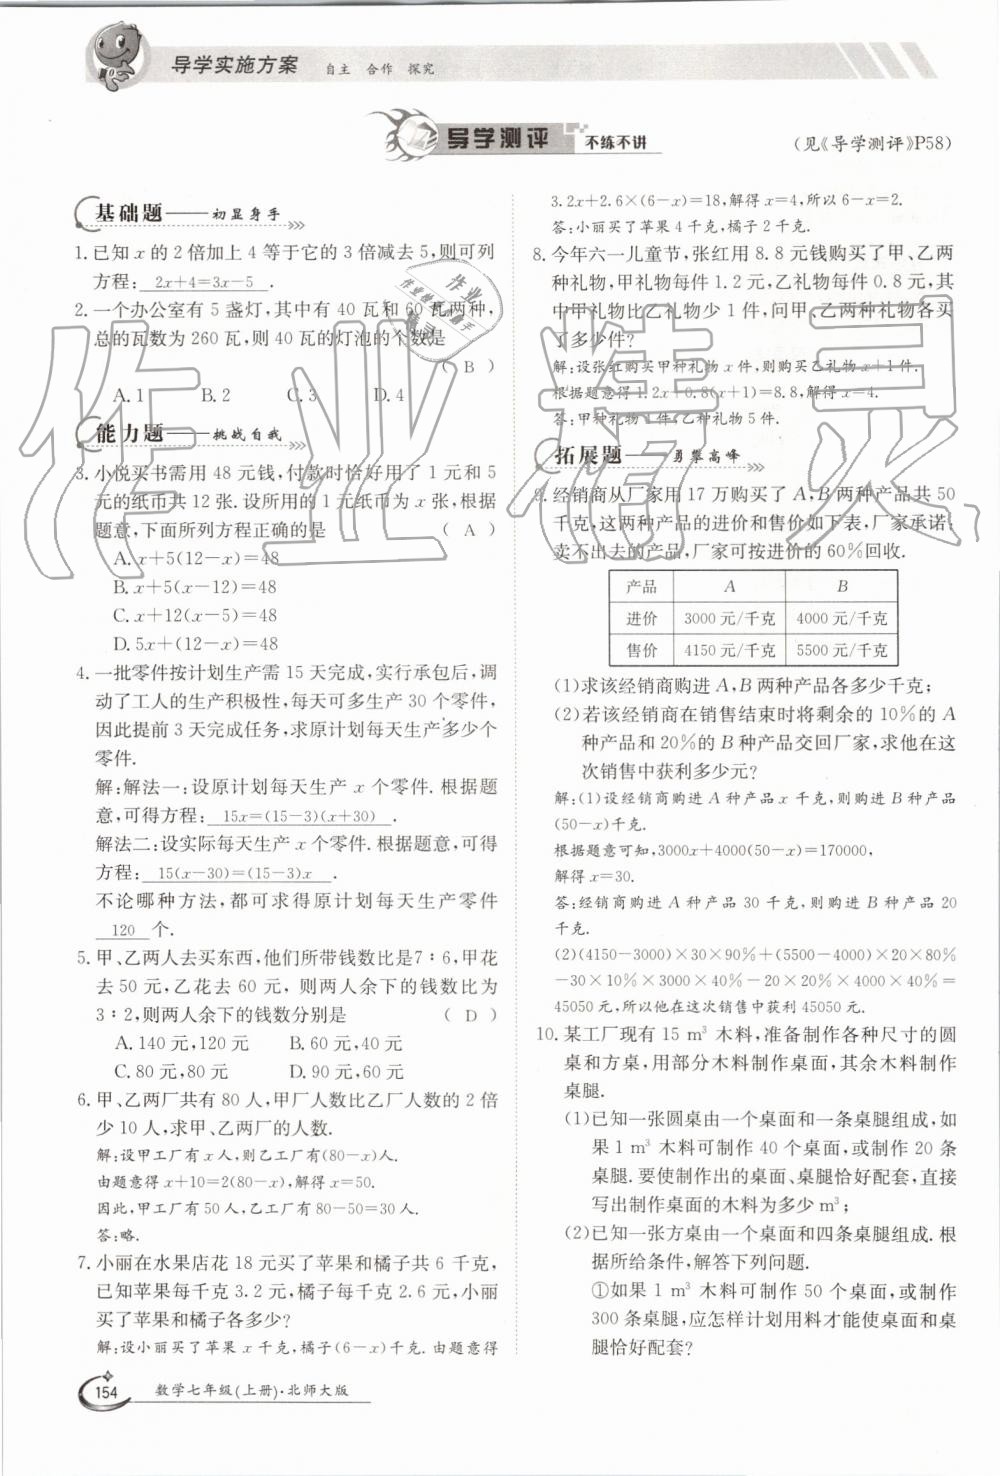 导学实施方案 自主 合作 探究
导学测评 不练不讲
(见《导学测评》P58)
基础题——初显身手
1. 已知 x 的 2 倍加上 4 等于它的 3 倍减去 5,则可列
方程: 2x+4=3x-5 .
2. 一个办公室有 5 盏灯,其中有 40 瓦和 60 瓦两种,
总的瓦数为 260 瓦,则 40 瓦的灯泡的个数是
( B )
A. 1 B. 2 C. 3 D. 4
能力题——挑战自我
3. 小悦买书需用 48 元钱,付款时恰好用了 1 元和 5
元的纸币共 12 张. 设所用的 1 元纸币为 x 张,根据
题意,下面所列方程正确的是 ( A )
A. x+5(12-x)=48
B. x+5(x-12)=48
C. x+12(x-5)=48
D. 5x+(12-x)=48
4. 一批零件按计划生产需 15 天完成,实行承包后,调
动了工人的生产积极性,每天可多生产 30 个零件,
因此提前 3 天完成任务,求原计划每天生产多少个
零件.
解:解法一:设原计划每天生产 x 个零件. 根据题
意,可得方程: 15x=(15-3)(x+30) .
解法二:设实际每天生产 x 个零件. 根据题意,可得
方程: 15(x-30)=(15-3)x .
不论哪种方法,都可求得原计划每天生产零件
120 个.
5. 甲、乙两人去买东西,他们所带钱数比是7∶6,甲花
去 50 元,乙花去 60 元,则两人余下的钱数比为
3∶2,则两人余下的钱数分别是 ( D )
A. 140 元,120 元 B. 60 元,40 元
C. 80 元,80 元 D. 90 元,60 元
6. 甲、乙两厂共有 80 人,甲厂人数比乙厂人数的 2 倍
少 10 人,求甲、乙两厂的人数.
解:设甲工厂有 x 人,则乙工厂有(80-x)人.
由题意得 x+10=2(80-x),解得 x=50.
因此,甲工厂有 50 人,乙工厂有 80-50=30 人.
答:略.
7. 小丽在水果店花 18 元买了苹果和橘子共 6 千克,
已知苹果每千克 3.2 元,橘子每千克 2.6 元,小丽
买了苹果和橘子各多少?
解:设小丽买了苹果 x 千克,橘子(6-x)千克. 由题意得
154 数学七年级(上册)·北师大版
3.2x+2.6×(6-x)=18,解得 x=4,所以 6-x=2.
答:小丽买了苹果 4 千克,橘子 2 千克.
8. 今年六一儿童节,张红用 8.8 元钱购买了甲、乙两
种礼物,甲礼物每件 1.2 元,乙礼物每件 0.8 元,其
中甲礼物比乙礼物少 1 件,问甲、乙两种礼物各买
了多少件?
解:设张红购买甲种礼物 x 件,则购买乙礼物 x+1 件.
根据题意得 1.2x+0.8(x+1)=8.8,解得 x=4.
答:甲种礼物 4 件,乙种礼物 5 件.
拓展题——勇攀高峰
9. 经销商从厂家用 17 万购买了 A,B 两种产品共 50
千克,这两种产品的进价和售价如下表,厂家承诺:
卖不出去的产品,厂家可按进价的 60%回收.
产品 A B
进价 3000 元/千克 4000 元/千克
售价 4150 元/千克 5500 元/千克
(1)求该经销商购进 A,B 两种产品各多少千克;
(2)若该经销商在销售结束时将剩余的 10%的 A
种产品和 20%的 B 种产品交回厂家,求他在这
次销售中获利多少元?
解:(1)设经销商购进 A 种产品 x 千克,则购进 B 种产品
(50-x)千克.
根据题意可知,3000x+4000(50-x)=170000,
解得 x=30.
答:经销商购进 A 种产品 30 千克,则购进 B 种产品 20
千克.
(2)(4150-3000)×30×90%+(5500-4000)×20×80%
-30×10%×3000×40%-20×20%×4000×40%=
45050 元,所以他在这次销售中获利 45050 元.
10. 某工厂现有 15 m³ 木料,准备制作各种尺寸的圆
桌和方桌,用部分木料制作桌面,其余木料制作
桌腿.
(1)已知一张圆桌由一个桌面和一条桌腿组成,如
果 1 m³ 木料可制作 40 个桌面,或制作 20 条
桌腿. 要使制作出的桌面、桌腿恰好配套,直接
写出制作桌面的木料为多少 m³;
(2)已知一张方桌由一个桌面和四条桌腿组成. 根
据所给条件,解答下列问题.
①如果 1 m³ 木料可制作 50 个桌面,或制作
300 条桌腿,应怎样计划用料才能使桌面和桌
腿恰好配套?
作业精灵